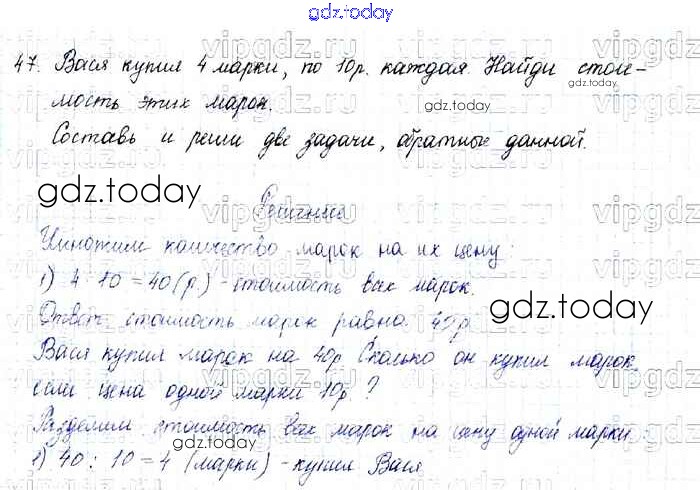 gdz.today
47. Вася купил 4 марки, по 10р. каждая. Найди стои-
мость этих марок.
gdz.today
Составь и реши две задачи, обратные данной.
gdz.today
Решение
Умножим количество марок на их цену:
1) 4 · 10 = 40 (р.) - стоимость всех марок.
gdz.today
Ответ: стоимость марок равна 40р
Вася купил марок на 40р Сколько он купил марок,
если цена одной марки 10р?
gdz.today
Разделим стоимость всех марок на цену одной марки
1) 40 : 10 = 4 (марки) - купил Вася
vipgdz.ru